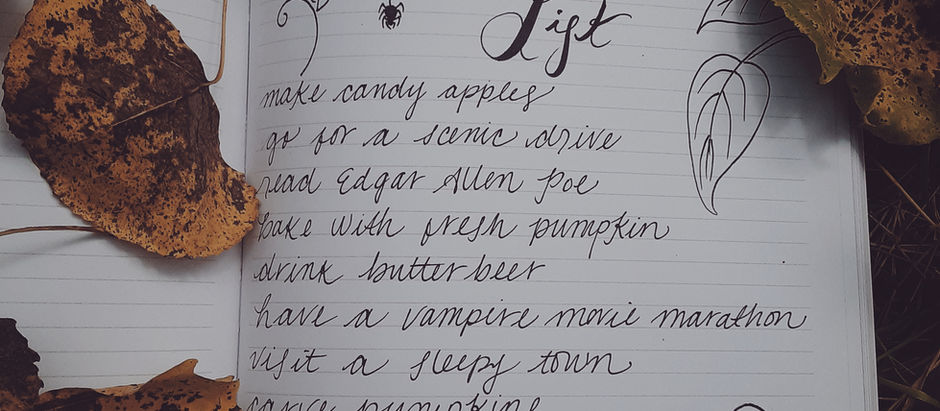 List
make candy apples
go for a scenic drive
read Edgar Allen Poe
bake with fresh pumpkin
drink butterbeer
have a vampire movie marathon
visit a sleepy town
carve pumpkins